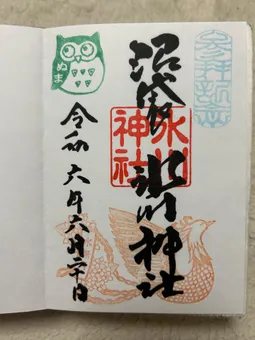 参拝記念
沼袋氷川神社
氷川神社
ぬま
令和六年六月二十日